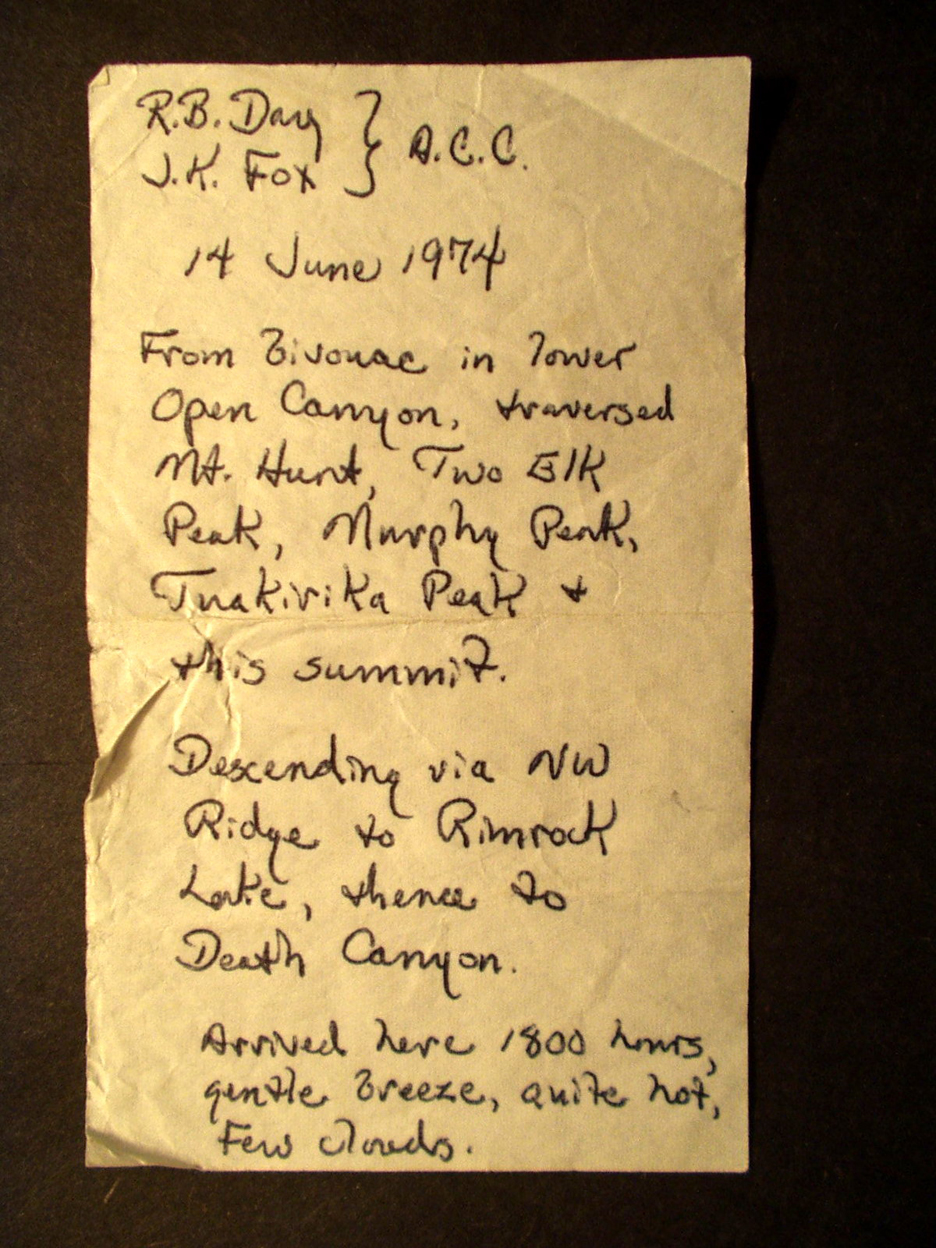 R.B. Day
J.K. Fox } A.C.C.
14 June 1974
From bivouac in lower
Open Canyon, traversed
Mt. Hunt, Two Elk
Peak, Murphy Peak,
Tuakirika Peak +
this summit.
Descending via NW
Ridge to Rimrock
Lake, thence to
Death Canyon.
Arrived here 1800 hours,
gentle breeze, quite hot,
Few clouds.